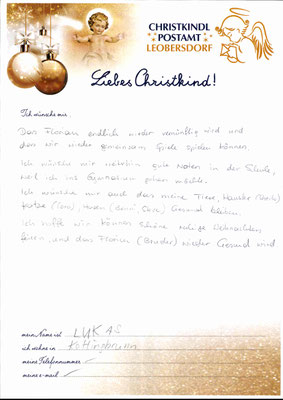 CHRISTKINDL
POSTAMT
LEOBERSDORF
Liebes Christkind!
Ich wünsche mir...
Das Florian endlich wieder vernünftig wird und
dan wir wieder gemeinsam Spiele spielen können.
Ich wünsche mir weiterhin gute Noten in der Schule,
weil ich ins Gymnasium gehen möchte.
Ich wünsche mir auch das meine Tiere, Hamster
Katze Gesund bleiben.
Ich hoffe wir können schöne ruhige Weihnachten
feiern, und das Florian (Bruder) wieder Gesund wird.
mein Name ist LUKAS
ich wohne in Kottingbrunn
meine Telefonnummer
meine e-mail